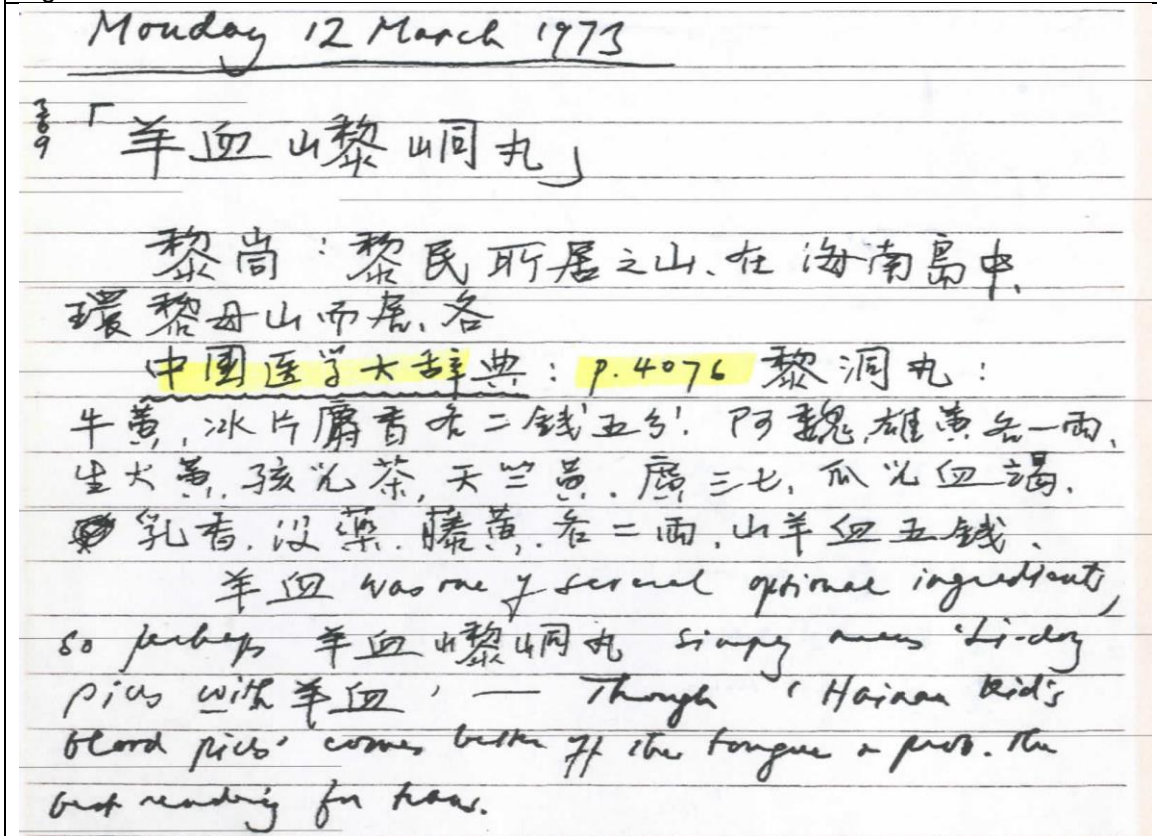 Monday 12 March 1973
369 「羊血㠟峒丸」
黎峝：黎民所居之山、在海南島中、
環黎母山而居、各
中国医学大辞典：p.4076 黎洞丸：
牛黄,冰片麝香各二錢五分！阿魏,雄黄各一両、
生大黄,孩児茶,天竺黄.廣三七,瓜児血竭.
乳香.没薬.藤黄.各二両,山羊血五錢.
羊血 was one of several optional ingredients,
so perhaps 羊血㠟峒丸 simply means 'Li-dong
pills with 羊血' — Though 'Hainan Kid's
blood pills' comes better off the tongue & prob. the
best reading for trans.